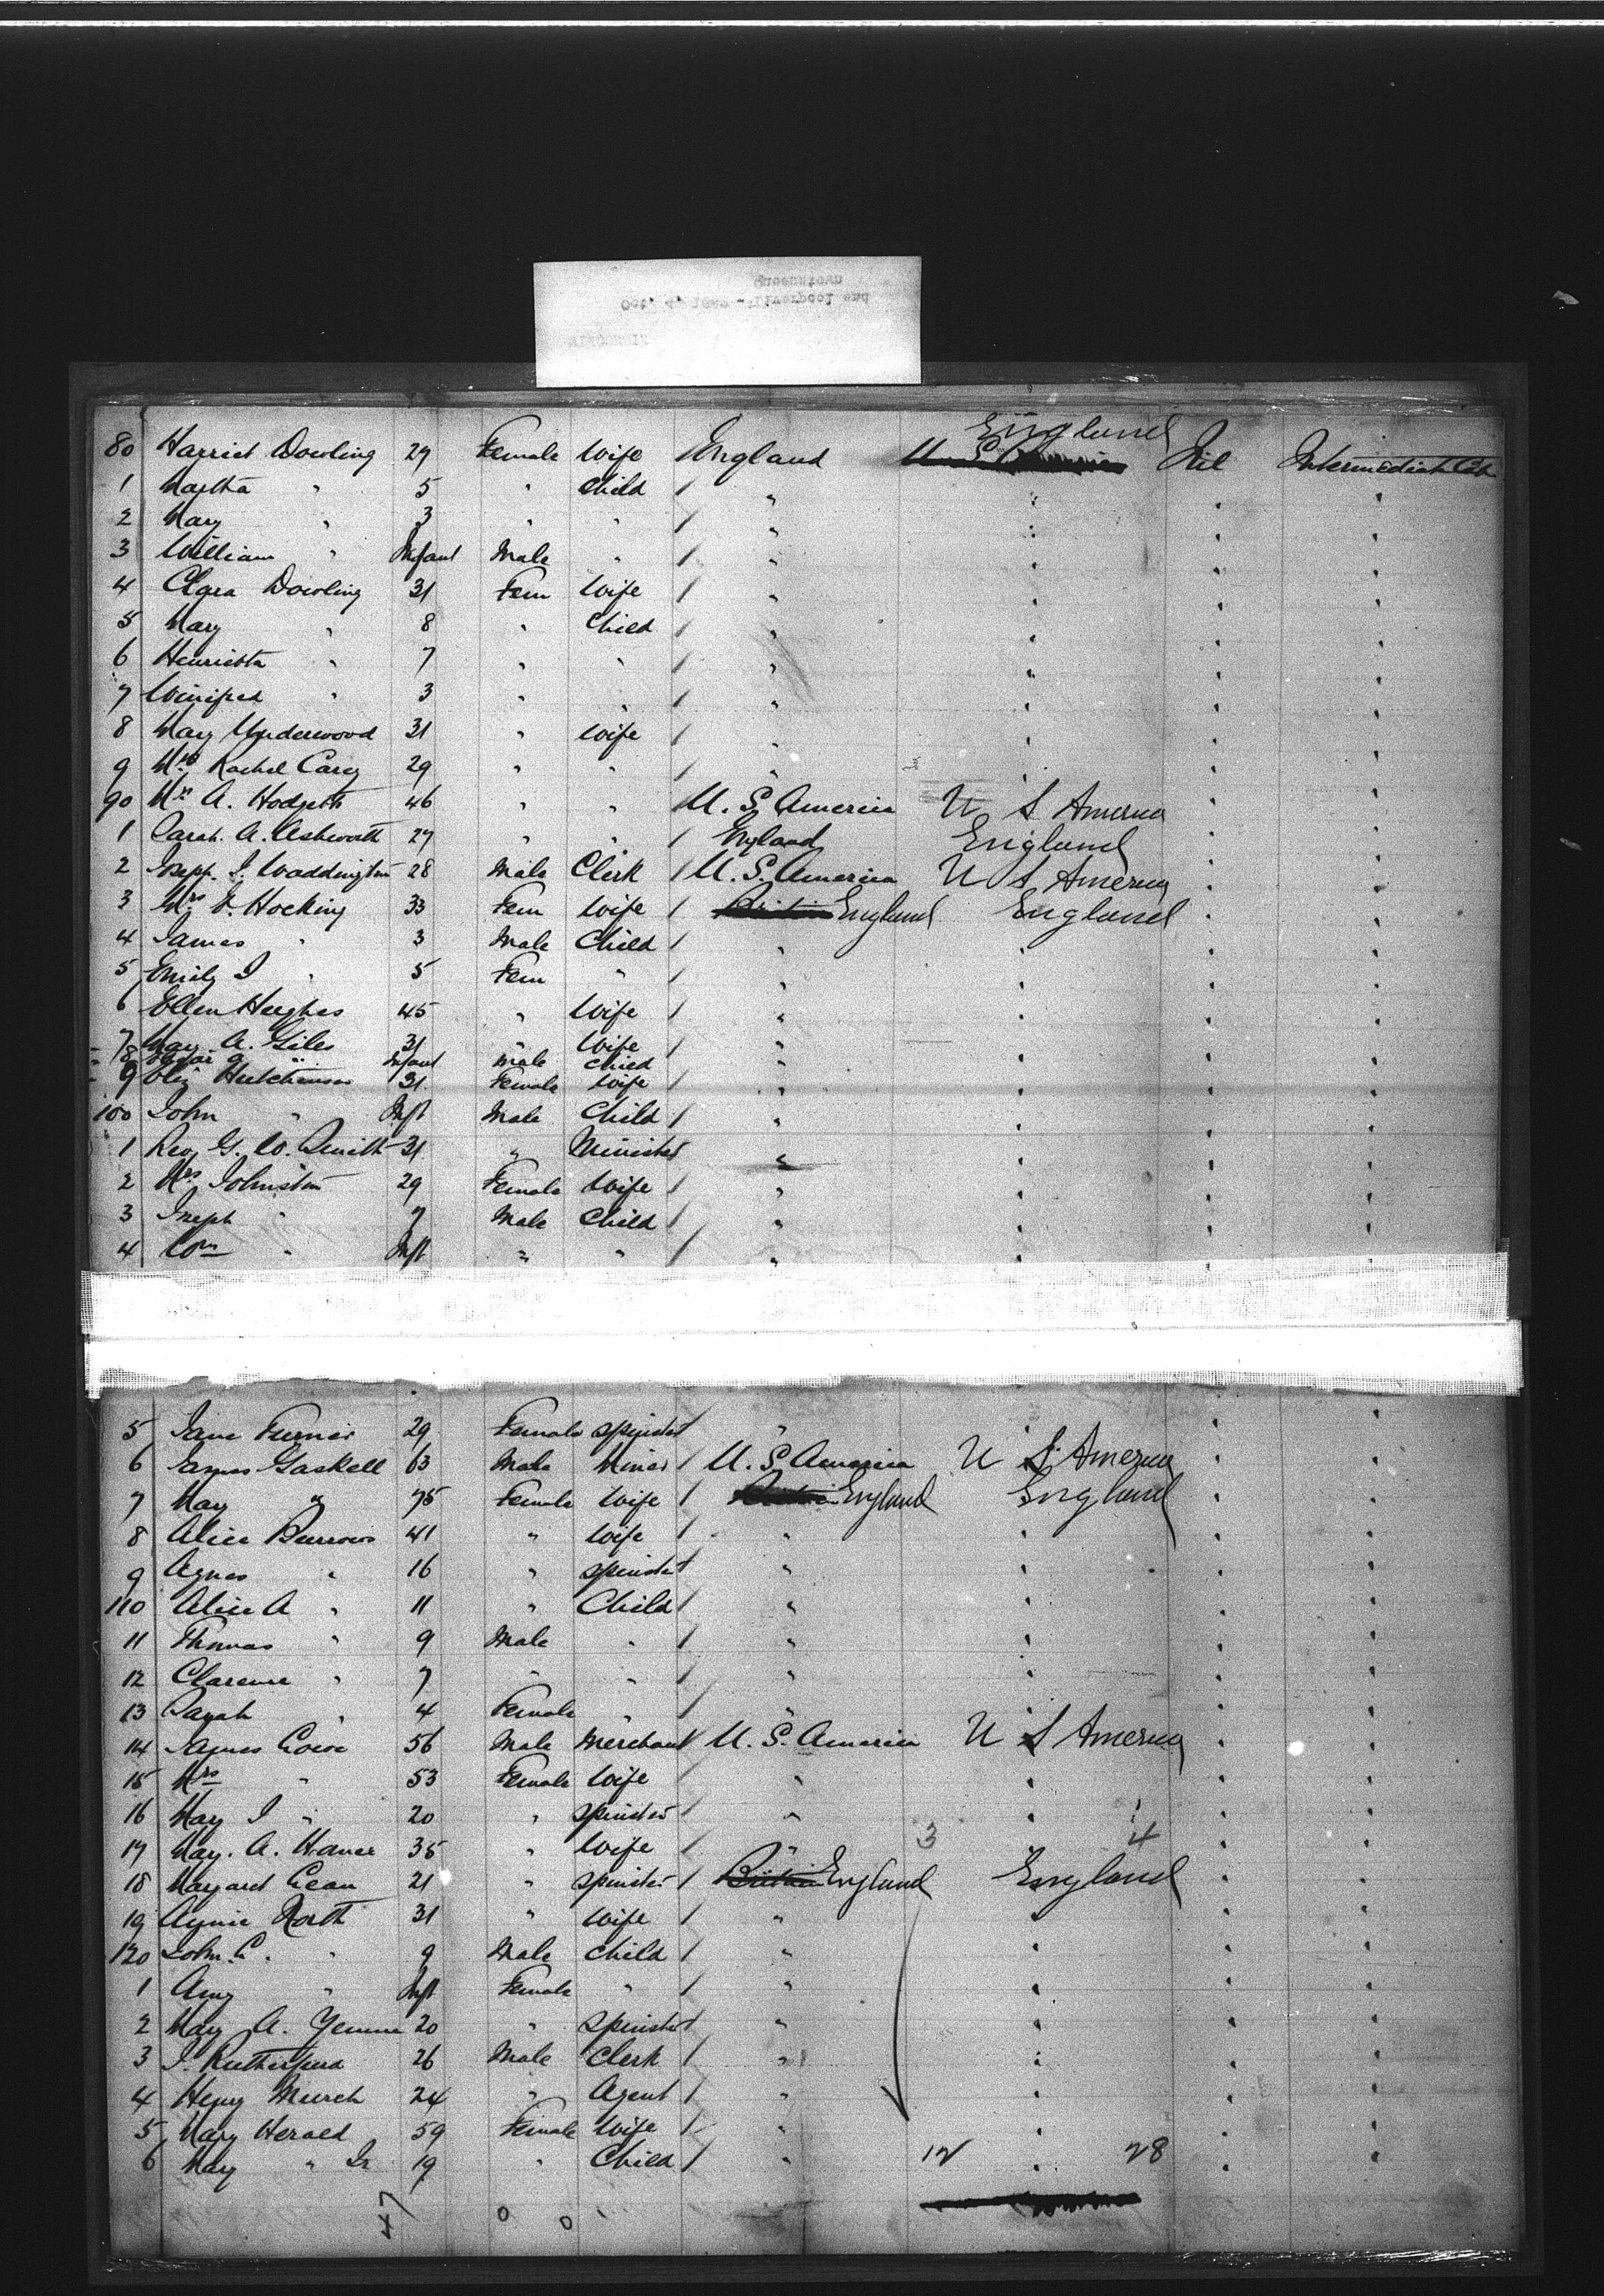 80 Harriet Dowling 29 Female Wife England England Nil Intermediate Cab
1 Martha " 5 " Child / " " " "
2 Mary " 3 " " / " " " "
3 William " Infant Male " / " " " "
4 Clara Dowling 31 Fem Wife / " " " "
5 Mary " 8 " Child / " " " "
6 Henrietta " 7 " " / " " " "
7 Winifred " 3 " " / " " " "
8 Mary Underwood 31 " Wife / " " " "
9 Mrs Rachel Carey 29 " " / " " " "
90 Mrs A. Hodgetts 46 " " / U. S. America U S America " "
1 Sarah. A. Ashworth 27 " " / England England " "
2 Joseph. J. Waddington 28 Male Clerk / U. S. America U S America " "
3 Mrs Hocking 33 Fem Wife / England England " "
4 James " 3 Male Child / " " " "
5 Emily J " 5 Fem " / " " " "
6 Ellen Hughes 45 " Wife / " " " "
7 Mary A. Giles 31 " Wife / " " " "
8 " Infant Male Child
9 Eliz Hutchinson 31 Female Wife / " " " "
100 John " Inft Male Child / " " " "
1 Rev G. W. Smith 31 " Minister " " " "
2 Mrs Johnston 29 Female Wife / " " " "
3 Joseph " 7 Male Child / " " " "
4 Wm " Inft " " / " " " "
5 Jane 29 Female Spinster / " " " "
6 James Gaskell 63 Male Miner / U. S. America U S America " "
7 May " 75 Female Wife / England England " "
8 Alice Burrows 41 " Wife / " " " "
9 Agnes " 16 " Spinster " " " "
110 Alice A " 11 " Child / " " " "
11 Thomas " 9 Male " / " " " "
12 Clarence " 7 " " / " " " "
13 Sarah " 4 Female " / " " " "
14 James Cowe 56 Male Merchant / U. S. America U S America " "
15 Mrs " 53 Female Wife / " " " "
16 May J " 20 " Spinster / " " " "
17 May. A. 35 " Wife / " 3 4 " "
18 Margaret 21 " Spinster / England England " "
19 Annie North 31 " Wife / " " " "
120 John C. " 9 Male Child / " " " "
1 Amy " Inft Female " / " " " "
2 May A. 20 " Spinster " " " "
3 J. Rutherford 26 Male Clerk / " " " "
4 Henry Murch 24 " Agent / " " " "
5 Mary Herald 59 Female Wife / " " " "
6 May " Jr 19 " Child / " 12 28 " "
47 0 0